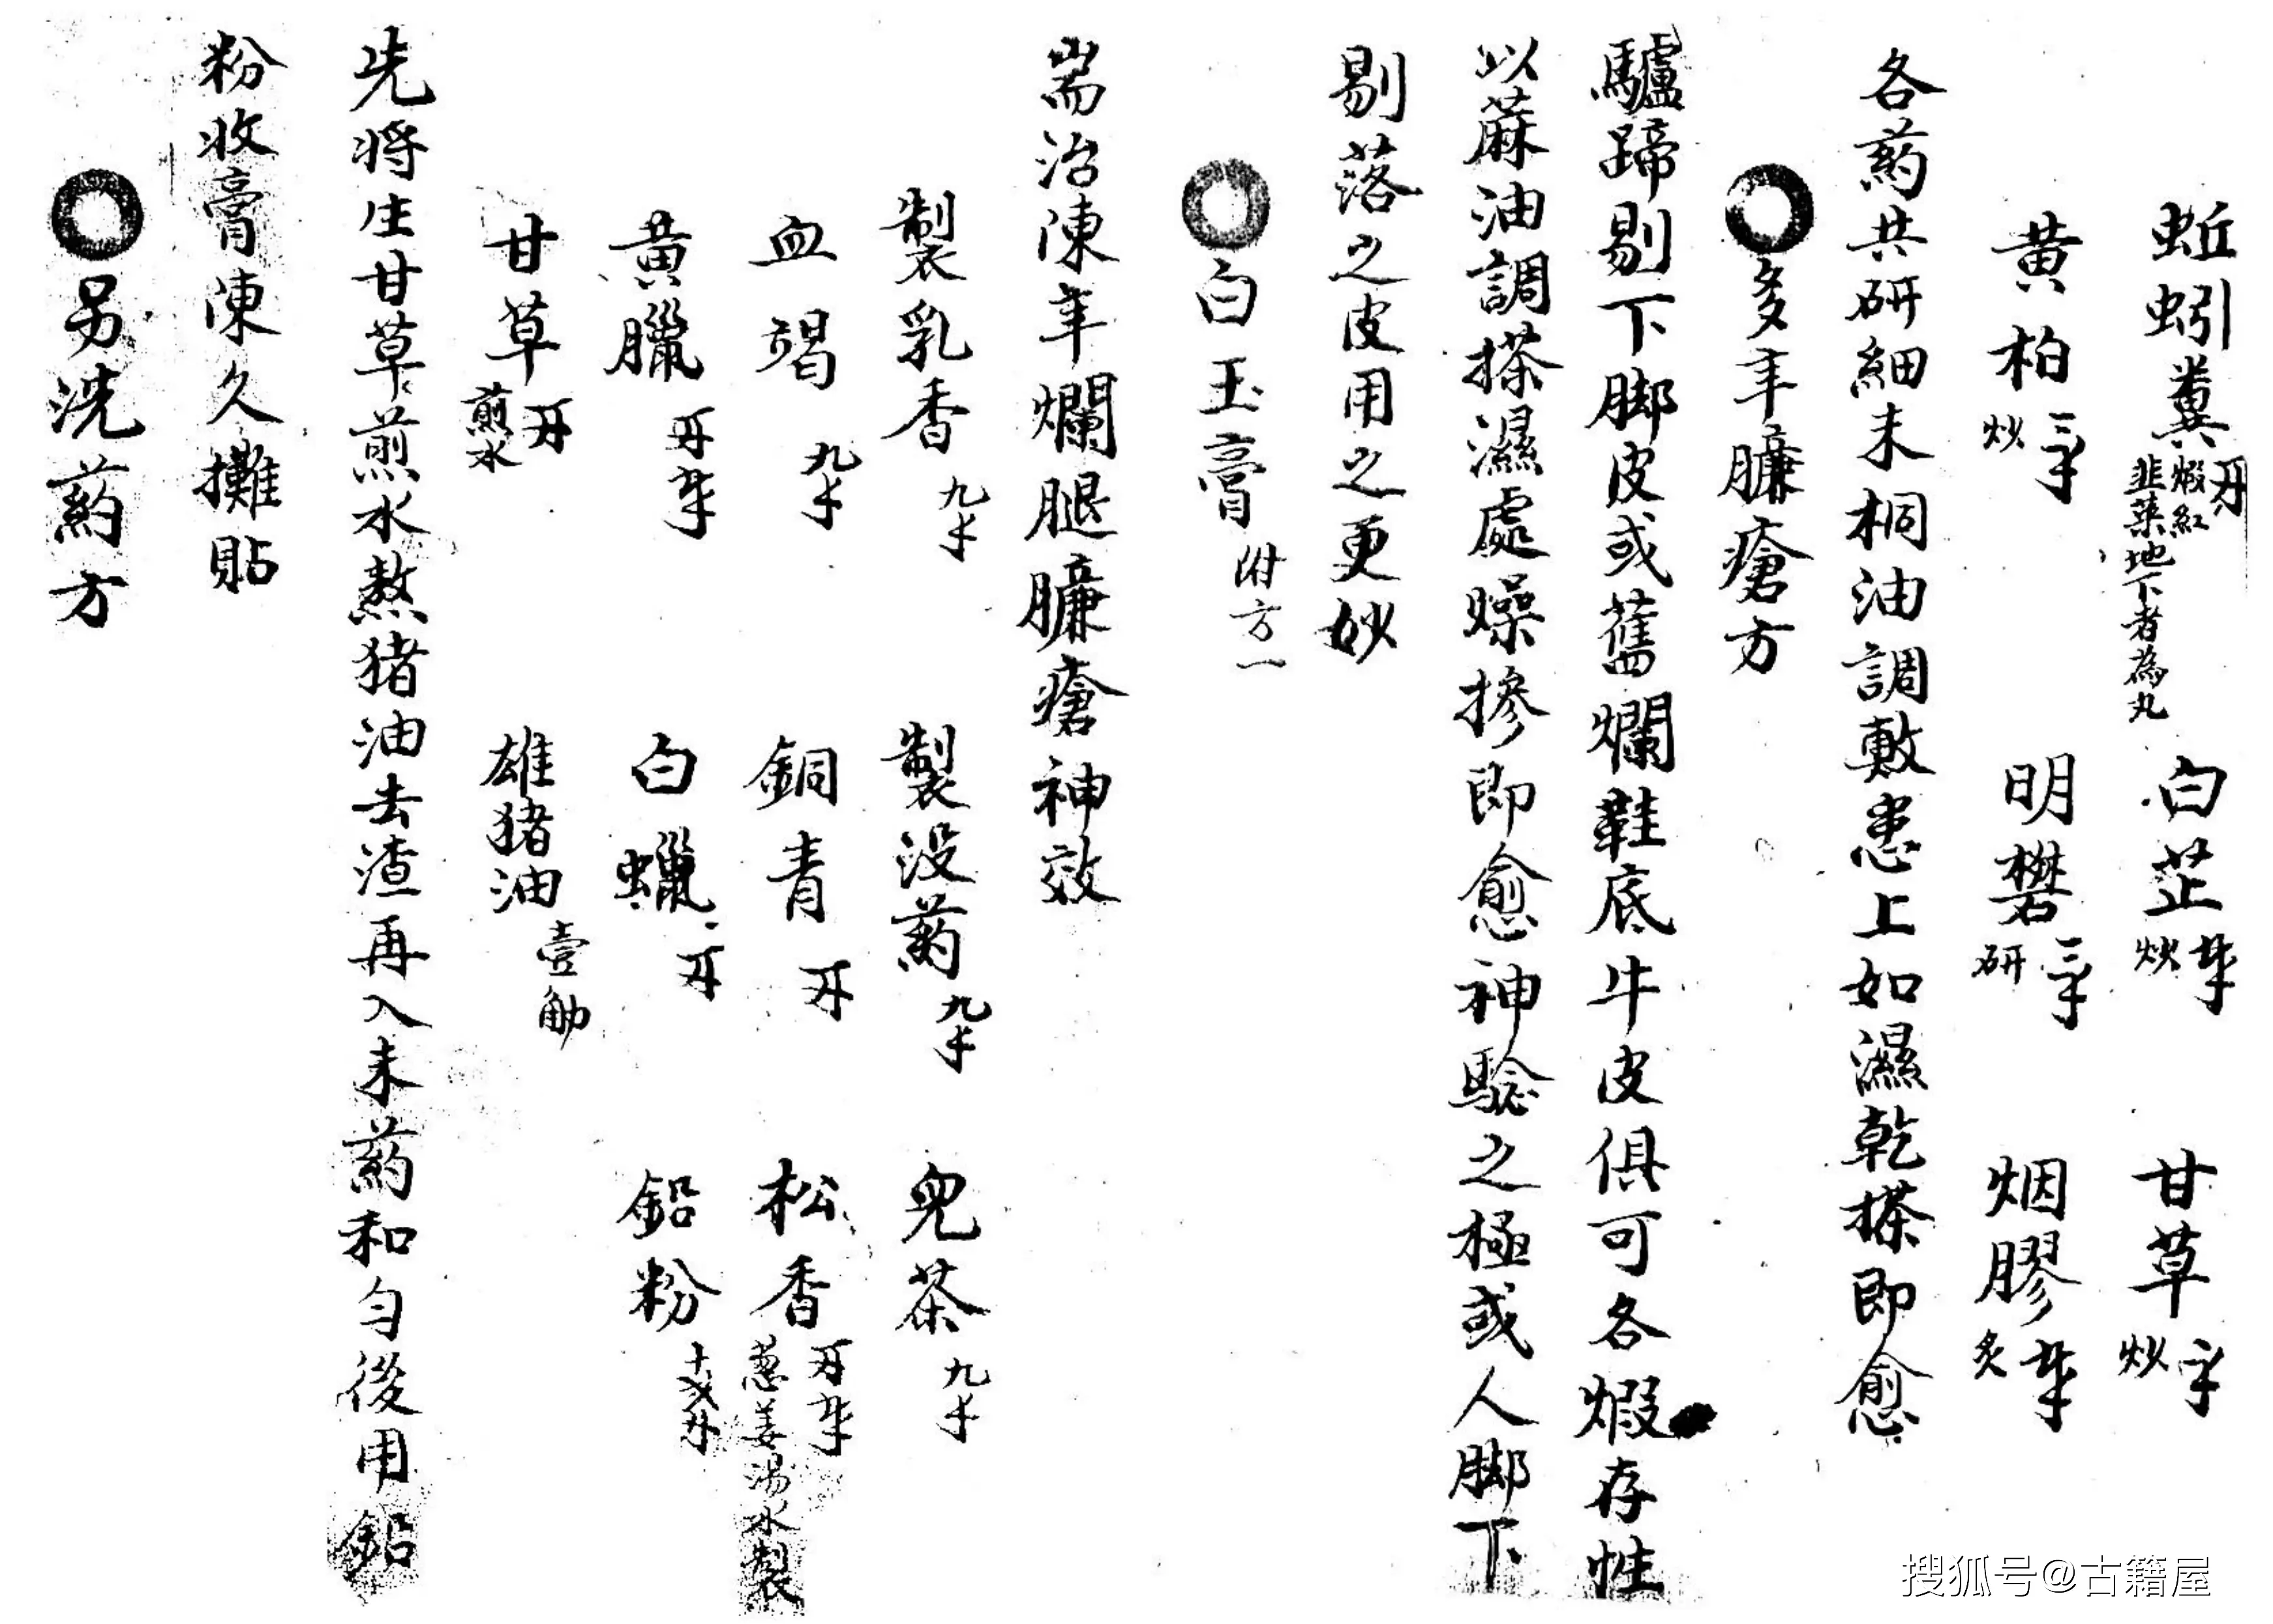 蚯蚓糞 煆紅 韭菜地下者為丸 白芷 炒 甘草 炒
黄柏 炒 明礬 研 烟膠 炙
各葯共研細末桐油調敷患上如濕乾搽即愈
多年臁瘡方
驢蹄剔下脚皮或舊爛鞋底牛皮俱可各煆存性
以蔴油調搽濕處燥摻即愈神驗之極或人脚下
剔落之皮用之更妙
白玉膏 附方一
耑治陳年爛腿臁瘡神效
製乳香 製没葯 兒茶
血竭 銅青 松香 葱姜湯水製
黄臘 白蠟 鉛粉
甘草 煎水 雄猪油 壹觔
先將生甘草煎水熬猪油去渣再入末葯和匀後用鉛
粉收膏陳久攤貼
另洗葯方
搜狐号@古籍屋